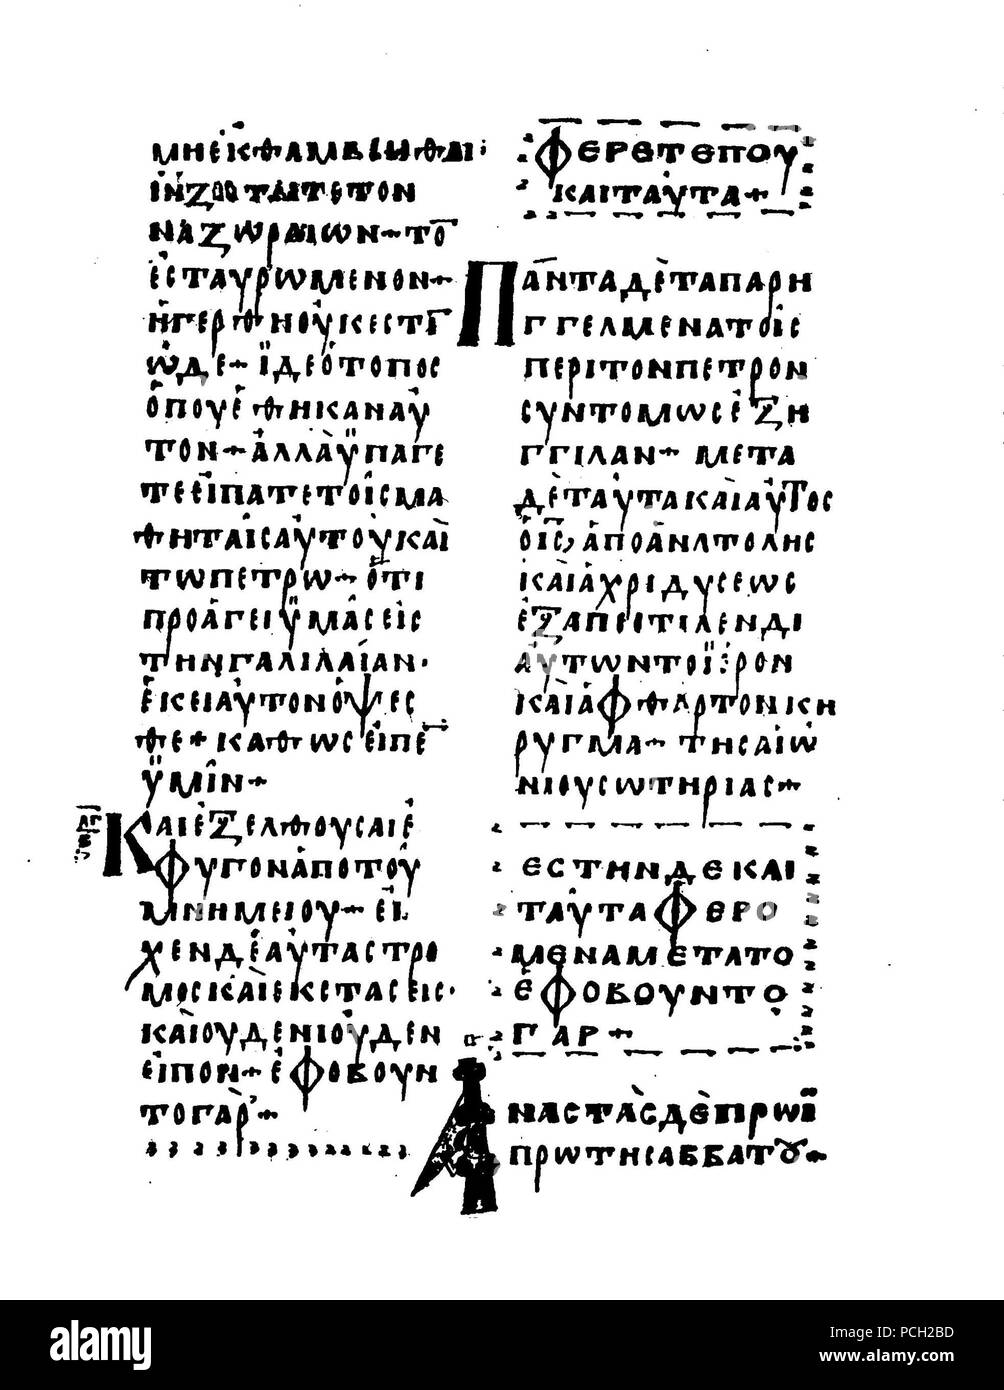 ΜΗΕΚΘΑΜΒΕΙΣΘΑΙ·
ΙΝ̄ΖΗΤΕΙΤΕΤΟΝ
ΝΑΖΩΡΑΙΟΝ+ΤΟ̄
ἘΣΤΑΥΡΩΜΕΝΟΝ+
ἨΓΕΡΘΗΟΥΚΕΣΤῙ
ὯΔΕ+ΪΔΕὉΤΟΠΟΣ
ὉΠΟΥἘΘΗΚΑΝΑΥ
ΤΟΝ+ἈΛΛᾺΫΠΑΓΕ
ΤΕΕΙΠΑΤΕΤΟΙΣΜΑ
ΘΗΤΑΙΣΑΥΤΟΥΚΑῚ
ΤΩΠΕΤΡΩ+ὉΤΙ
ΠΡΟΆΓΕΙΫΜΑΣΕΙΣ
ΤΗΝΓΑΛΙΛΑΊΑΝ·
ἘΚΕΙΑΥΤΟΝΟΨΕΣ
ΘΕ+ΚΑΘΩΣΕΙΠΕ̄
ΫΜΙΝ+
ΚΑΙΕΞΕΛΘΟΥΣΑΙΕ
ΦΥΓΟΝΑΠΟΤΟΥ
ΜΝΗΜΕΙΟΥ+ΕΙ
ΧΕΝΔΕΑΥΤΑΣΤΡΟ
ΜΟΣΚΑΙΕΚΣΤΑΣΕΙΣ·
ΚΑΙΟΥΔΕΝΙΟΥΔΕΝ
ΕΙΠΟΝ+ἘΦΟΒΟΥΝ
ΤΟΓΑΡ+
ΦΕΡΕΤΕΠΟΥ
ΚΑΙΤΑΥΤΑ+
ΠΑΝΤΑΔΕΤΑΠΑΡΗ
ΓΓΕΛΜΕΝΑΤΟΙΣ
ΠΕΡΙΤΟΝΠΕΤΡΟΝ
ΣΥΝΤΟΜΩΣΕΞΗ
ΓΓΙΛΑΝ+ΜΕΤΑ
ΔΕΤΑΥΤΑΚΑΙΑΥΤΟΣ
ὉῙΣ̄,ΑΠΟΑΝΑΤΟΛΗΣ
ΚΑΙΑΧΡΙΔΥΣΕΩΣ
ΕΞΑΠΕΣΤΙΛΕΝΔΙ
ΑΥΤΩΝΤΟΪΕΡΟΝ
ΚΑΙΑΦΘΑΡΤΟΝΚΗ
ΡΥΓΜΑ+ΤΗΣΑΙΩ
ΝΙΟΥΣΩΤΗΡΙΑΣ+
ΕΣΤΗΝΔΕΚΑΙ
ΤΑΥΤΑΦΕΡΟ
ΜΕΝΑΜΕΤΑΤΟ
ἘΦΟΒΟΥΝΤΟ
ΓΑΡ+
ΑΝΑΣΤΑΣΔΕΠΡΩΪ
ΠΡΩΤΗΣΑΒΒΑΤΟΥ+
alamy
Image ID: PCH2BD
www.alamy.com